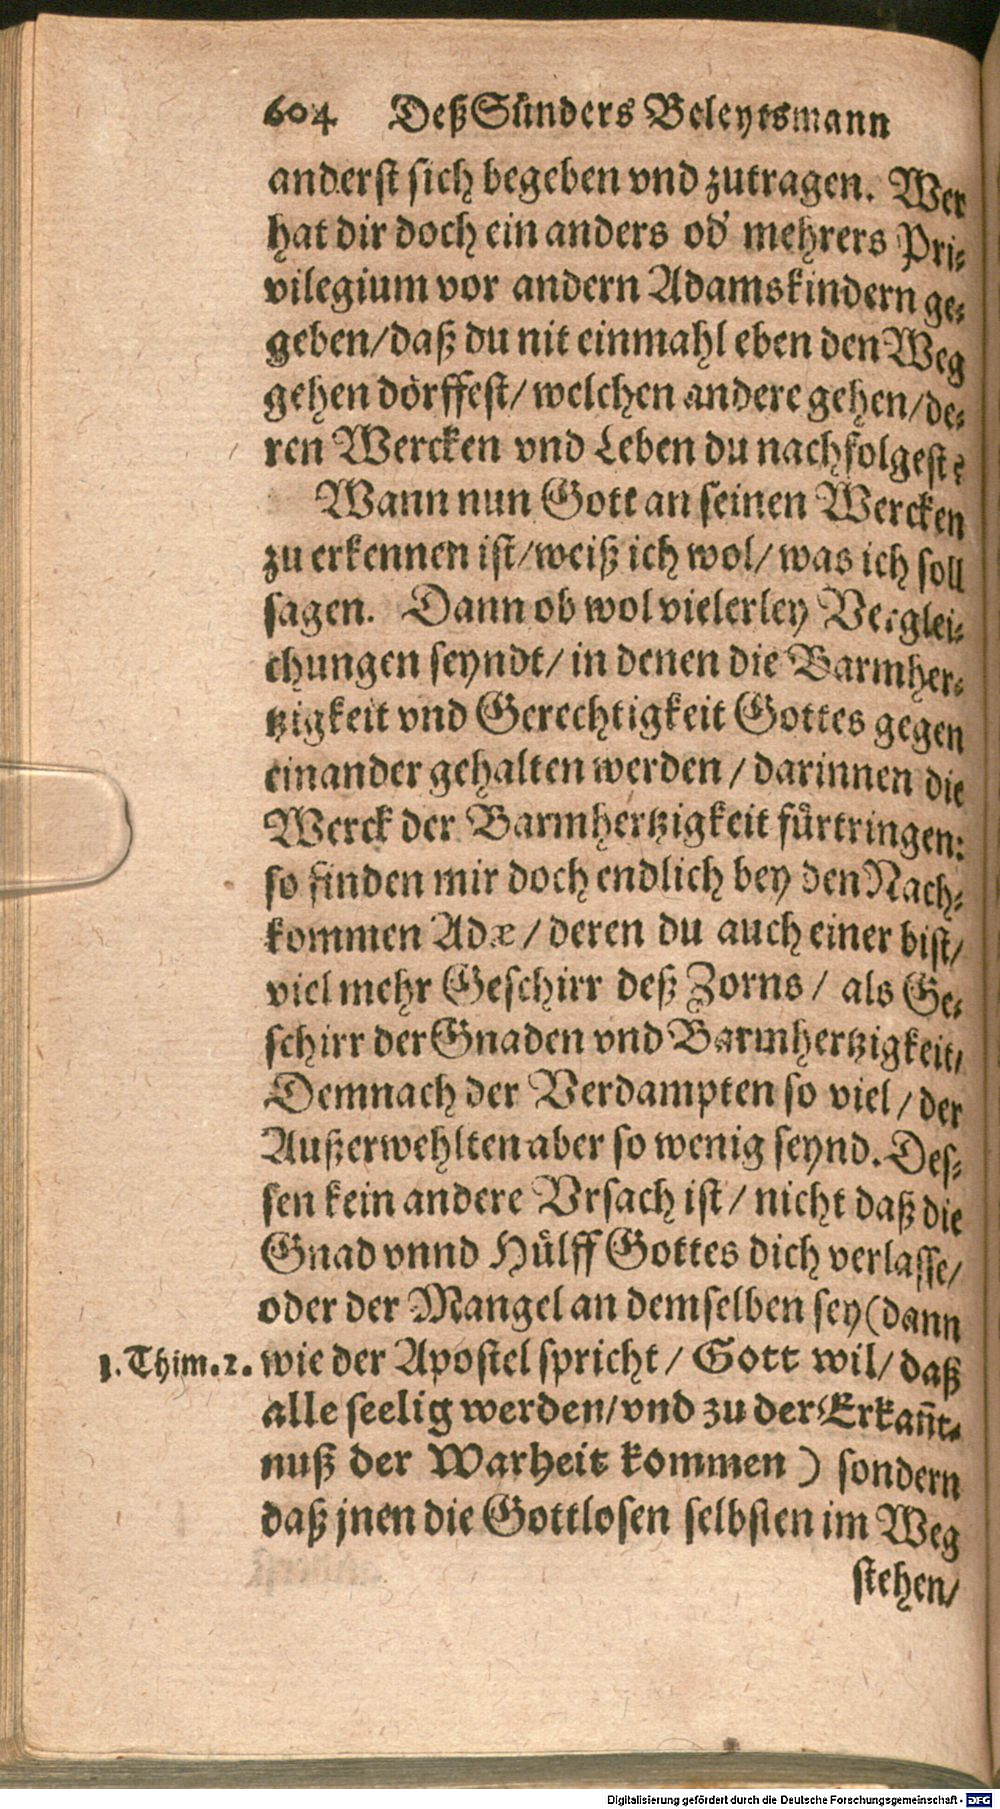 604 Deß Sünders Beleytsmann
anderst sich begeben vnd zutragen. Wer
hat dir doch ein anders od' mehrers Pri-
vilegium vor andern Adamskindern ge-
geben/ daß du nit einmahl eben den Weg
gehen dörffest/ welchen andere gehen/ de-
ren Wercken vnd Leben du nachfolgest?
Wann nun Gott an seinen Wercken
zu erkennen ist/ weiß ich wol/ was ich soll
sagen. Dann ob wol vielerley Verglei-
chungen seyndt/ in denen die Barmher-
tzigkeit vnd Gerechtigkeit Gottes gegen
einander gehalten werden/ darinnen die
Werck der Barmhertzigkeit fürtringen:
so finden mir doch endlich bey den Nach-
kommen Adæ/ deren du auch einer bist/
viel mehr Geschirr deß Zorns/ als Ge-
schirr der Gnaden vnd Barmhertzigkeit/
Demnach der Verdampten so viel/ der
Außerwehlten aber so wenig seynd. Des-
sen kein andere Vrsach ist/ nicht daß die
Gnad vnnd Hülff Gottes dich verlasse/
oder der Mangel an demselben sey (dann
1. Thim. 2. wie der Apostel spricht/ Gott wil/ daß
alle seelig werden/ vnd zu der Erkañt-
nuß der Warheit kommen) sondern
daß jnen die Gottlosen selbsten im Weg
stehen/
Digitalisierung gefördert durch die Deutsche Forschungsgemeinschaft - DFG